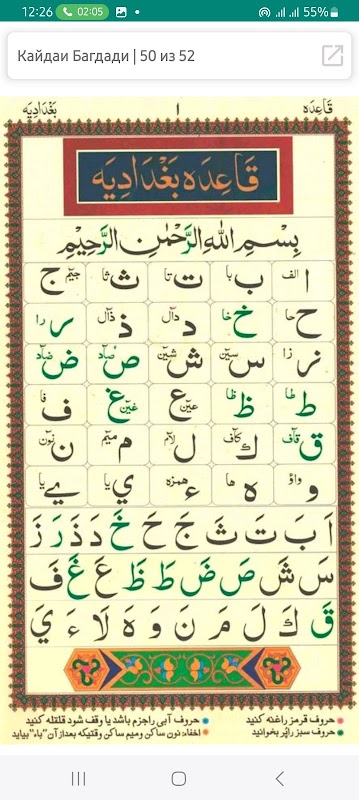 12:26 02:05 55%
Кайдаи Багдади | 50 из 52
قاعده ۱ بغدادیه
قَاعِدَه بَغْدَادِیَه
بِسْمِ اللهِ الرَّحْمٰنِ الرَّحِیْمِ
ا الف ب با ت تا ث ثا ج جیم
ح حا خ خا د دال ذ ذال ر را
ز زا س سین ش شین ص صاد ض ضاد
ط طا ظ ظا ع عین غ غین ف فا
ق قاف ك کاف ل لام م میم ن نون
و واؤ ه ها ء همزه ي یا ے یا
اَ بَ تَ ثَ جَ حَ خَ دَ ذَ رَ زَ
سَ شَ صَ ضَ طَ ظَ عَ غَ فَ
قَ كَ لَ مَ نَ وَ هَ لَا ءَ يَ
حروف قرمز راغنه کنید حروف آبی راجزم باشد یا وقف شود قلقله کنید
حروف سبز راپُر بخوانید اخفاء: نون ساکن ومیم ساکن وقتیکه بعدازآن "باء" بیاید